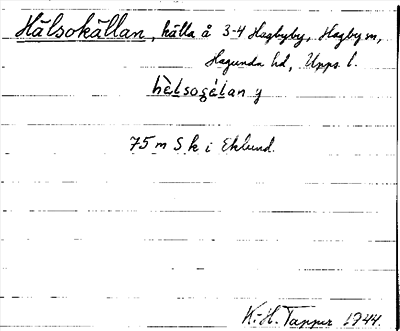 Hälsokällan, källa å 3-4 Hagbyby, Hagby sn,
Hagunda hd, Upps. l.
hèlsoçélan y
75 m S k i Eklund.
K.-H. Tapper 1944.